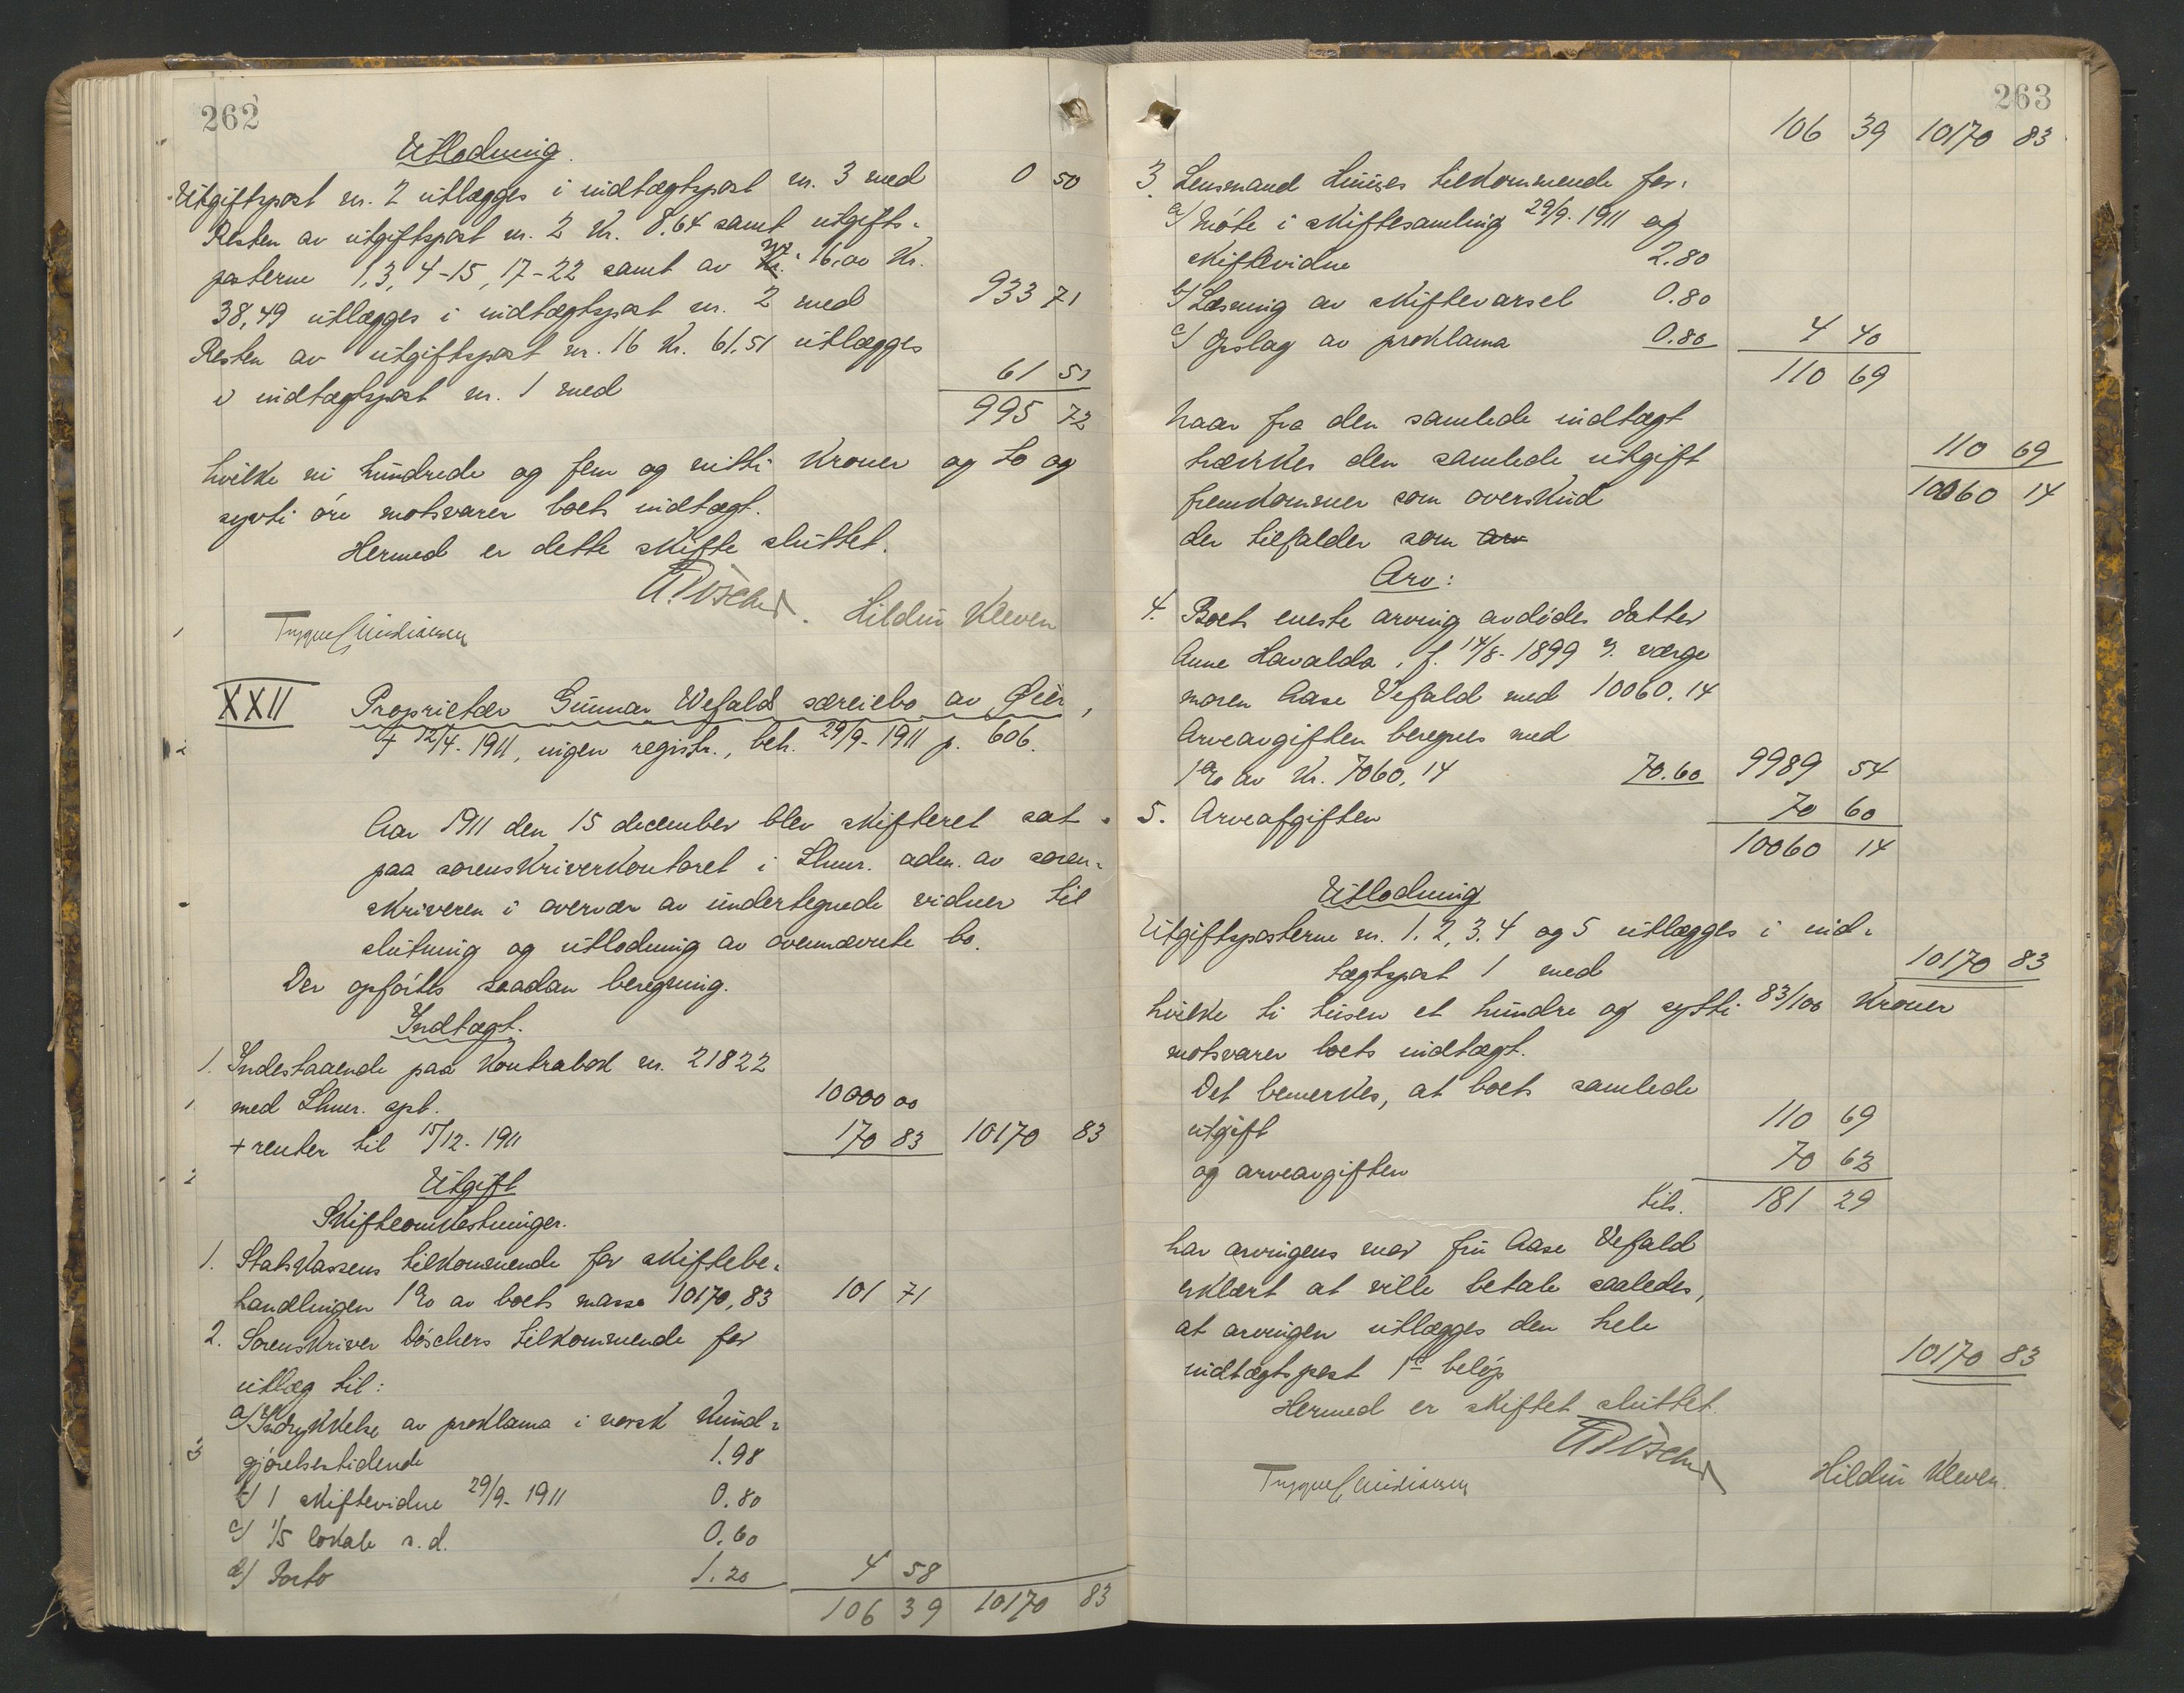 262
Utlodning.
Utgiftspost nr. 2 utlægges i indtægtspost nr. 3 med 0 50
Resten av utgiftspost nr. 2 Kr. 8.64 samt utgifts-
posterne 1, 3, 4-15, 17-22 samt av nr. 16 av Kr.
38,49 utlægges i indtægtspost nr. 2 med 933 71
Resten av utgiftspost nr. 16 Kr. 61.51 utlægges
i indtægtspost nr. 1 med 61 51
995 72
hvilke ni hundrede og fem og nitti Kroner og to og
sytti øre motsvarer boets indtægt.
Hermed er dette skifte sluttet.
Døscher. Hildur Kleven
Trygve Christiansen
XXII Proprietær Gunnar Wefalds særeiebo av Øier,
† 12/4-1911, ingen registr., beh. 29/9-1911 p. 606.
Aar 1911 den 15 december blev skifteret sat
paa sorenskriverkontoret i Lhmr. adm. av soren-
skriveren i overvær av undertegnede vidner til
slutning og utlodning av ovennævnte bo.
Der opførtes saadan beregning.
Indtægt.
1. Indestaaende paa Kontrabok nr. 21822
med Lhmr. spb. 10000 00
+ renter til 15/12-1911 170 83 10170 83
Utgift
Skifteomkostninger.
1. Statskassens tilkommende for skiftebe-
handlingen 1% av boets masse 10170,83 101 71
2. Sorenskriver Døschers tilkommende for
utlæg til:
a/ Indrykkelse av proklama i norsk Kund-
gjørelsestidende 1.98
b/ 1 skiftevidne 29/9-1911 0.80
c/ 1/5 lokale s.d. 0.60
d/ Porto 1.20 4 58
106 39 10170 83
263
106 39 10170 83
3. Lensmand Huuses tilkommende for:
a/ Møte i skiftesamling 29/9-1911 og
skiftevidne 2.80
b/ Læsning av skiftevarsel 0.80
c/ Opslag av proklama 0.80 4 40
110 69
Naar fra den samlede indtægt
trækkes den samlede utgift 110 69
fremkommer som overskud 10060 14
der tilfalder som arv
Arv:
4. Boets eneste arving avdødes datter
Anne Havalda, f. 14/8-1899 u. værge
moren Aase Vefald med 10060.14
Arveavgiften beregnes med
1% av Kr. 7060,14 70.60 9989 54
5. Arveafgiften 70 60
10060 14
Utlodning
Utgiftsposterne nr. 1. 2, 3. 4 og 5 utlægges i ind-
tægtspost 1 med 10170 83
hvilke ti tusen et hundre og sytti 83/100 Kroner
motsvarer boets indtægt.
Det bemerkes, at boets samlede
utgift 110 69
og arveavgiften 70 63
tils. 181 29
har arvingens mor fru Aase Vefald
erklært at ville betale saaledes,
at arvingen utlægges den hele
indtægtspost 1s beløp 10170 83
Hermed er skiftet sluttet.
Døscher
Trygve Christiansen Hildur Kleven.